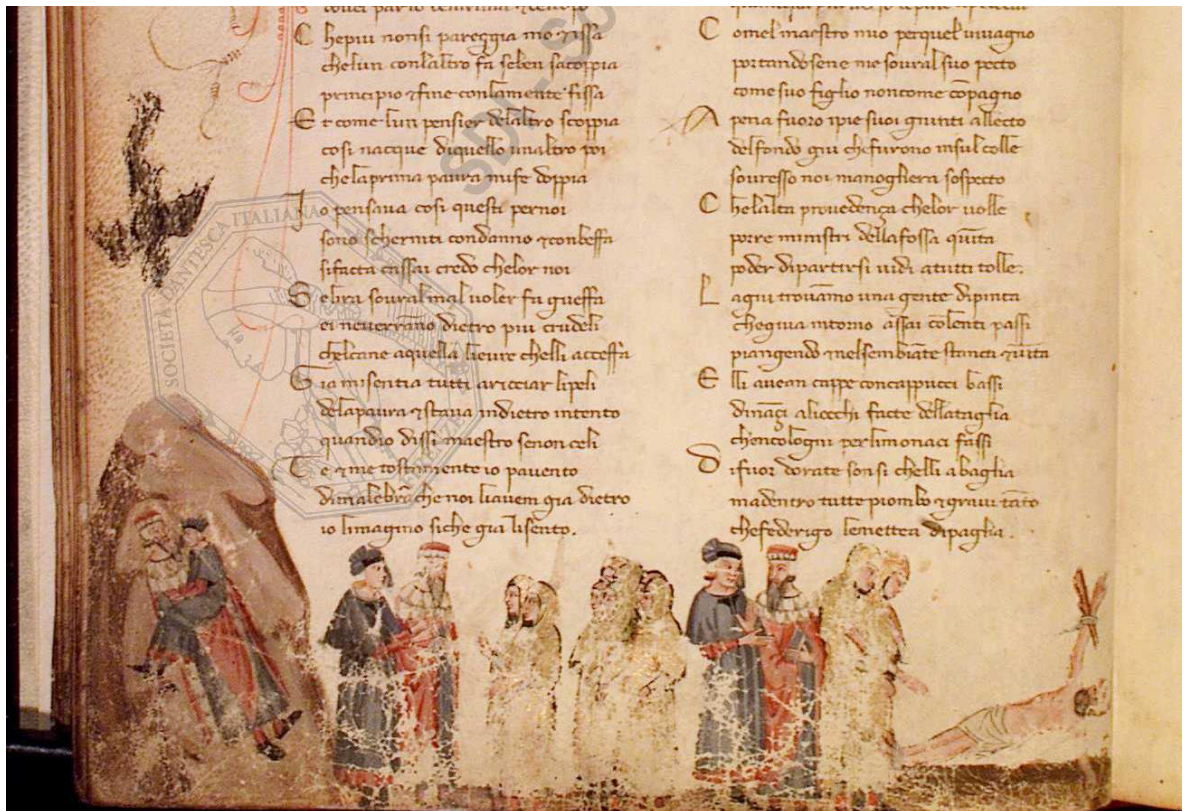 C hepiu nonsi pareggia mo ⁊issa
chelun conlaltro fa seben sacoppia
principio ⁊fine conlamente fissa
E t come lun pensier delaltro scoppia
cosi nacque diquello unaltro poi
chelaprima paura mife doppia
I o pensaua cosi questi pernoi
sono scherniti condanno ⁊conbeffa
sifacta cassai credo chelor noi
S elira soural mal uoler fa gueffa
ei neuerrāno dietro piu crudeli
chelcane aquella lieure chelli acceffa
G ia misentia tutti aricciar lipeli
delapaura ⁊staua indietro intento
quandio dissi maestro senon celi
T e ⁊ me tostamente io pauento
dimalebrāche noi liauem gia dietro
io limagino siche gia lisento.
C omel maestro mio perquel uiuagno
portandosene me soural suo pecto
come suo figlio noncome cōpagno
A pena fuoro ipie suoi giunti allecto
delfondo giu chefurono insul colle
souresso noi manogliera sospecto
C helalta prouedença chelor uolle
porre ministri dellafossa quīta
poder dipartirsi uidi atutti tolle.
L agiu trouāmo una gente dipinta
chegiua intorno assai cōlenti passi
piangendo ⁊nelsembiāte stanca ⁊uīta
E lli auean cappe concappucci bassi
dināçi aliocchi facte dellataglia
chencologni perlimonaci fassi
D ifuor dorate sonsi chelli abaglia
madentro tutte piombo ⁊graui tāto
chefederigo lemettea dipaglia.
SOCIETÀ DANTESCA ITALIANA